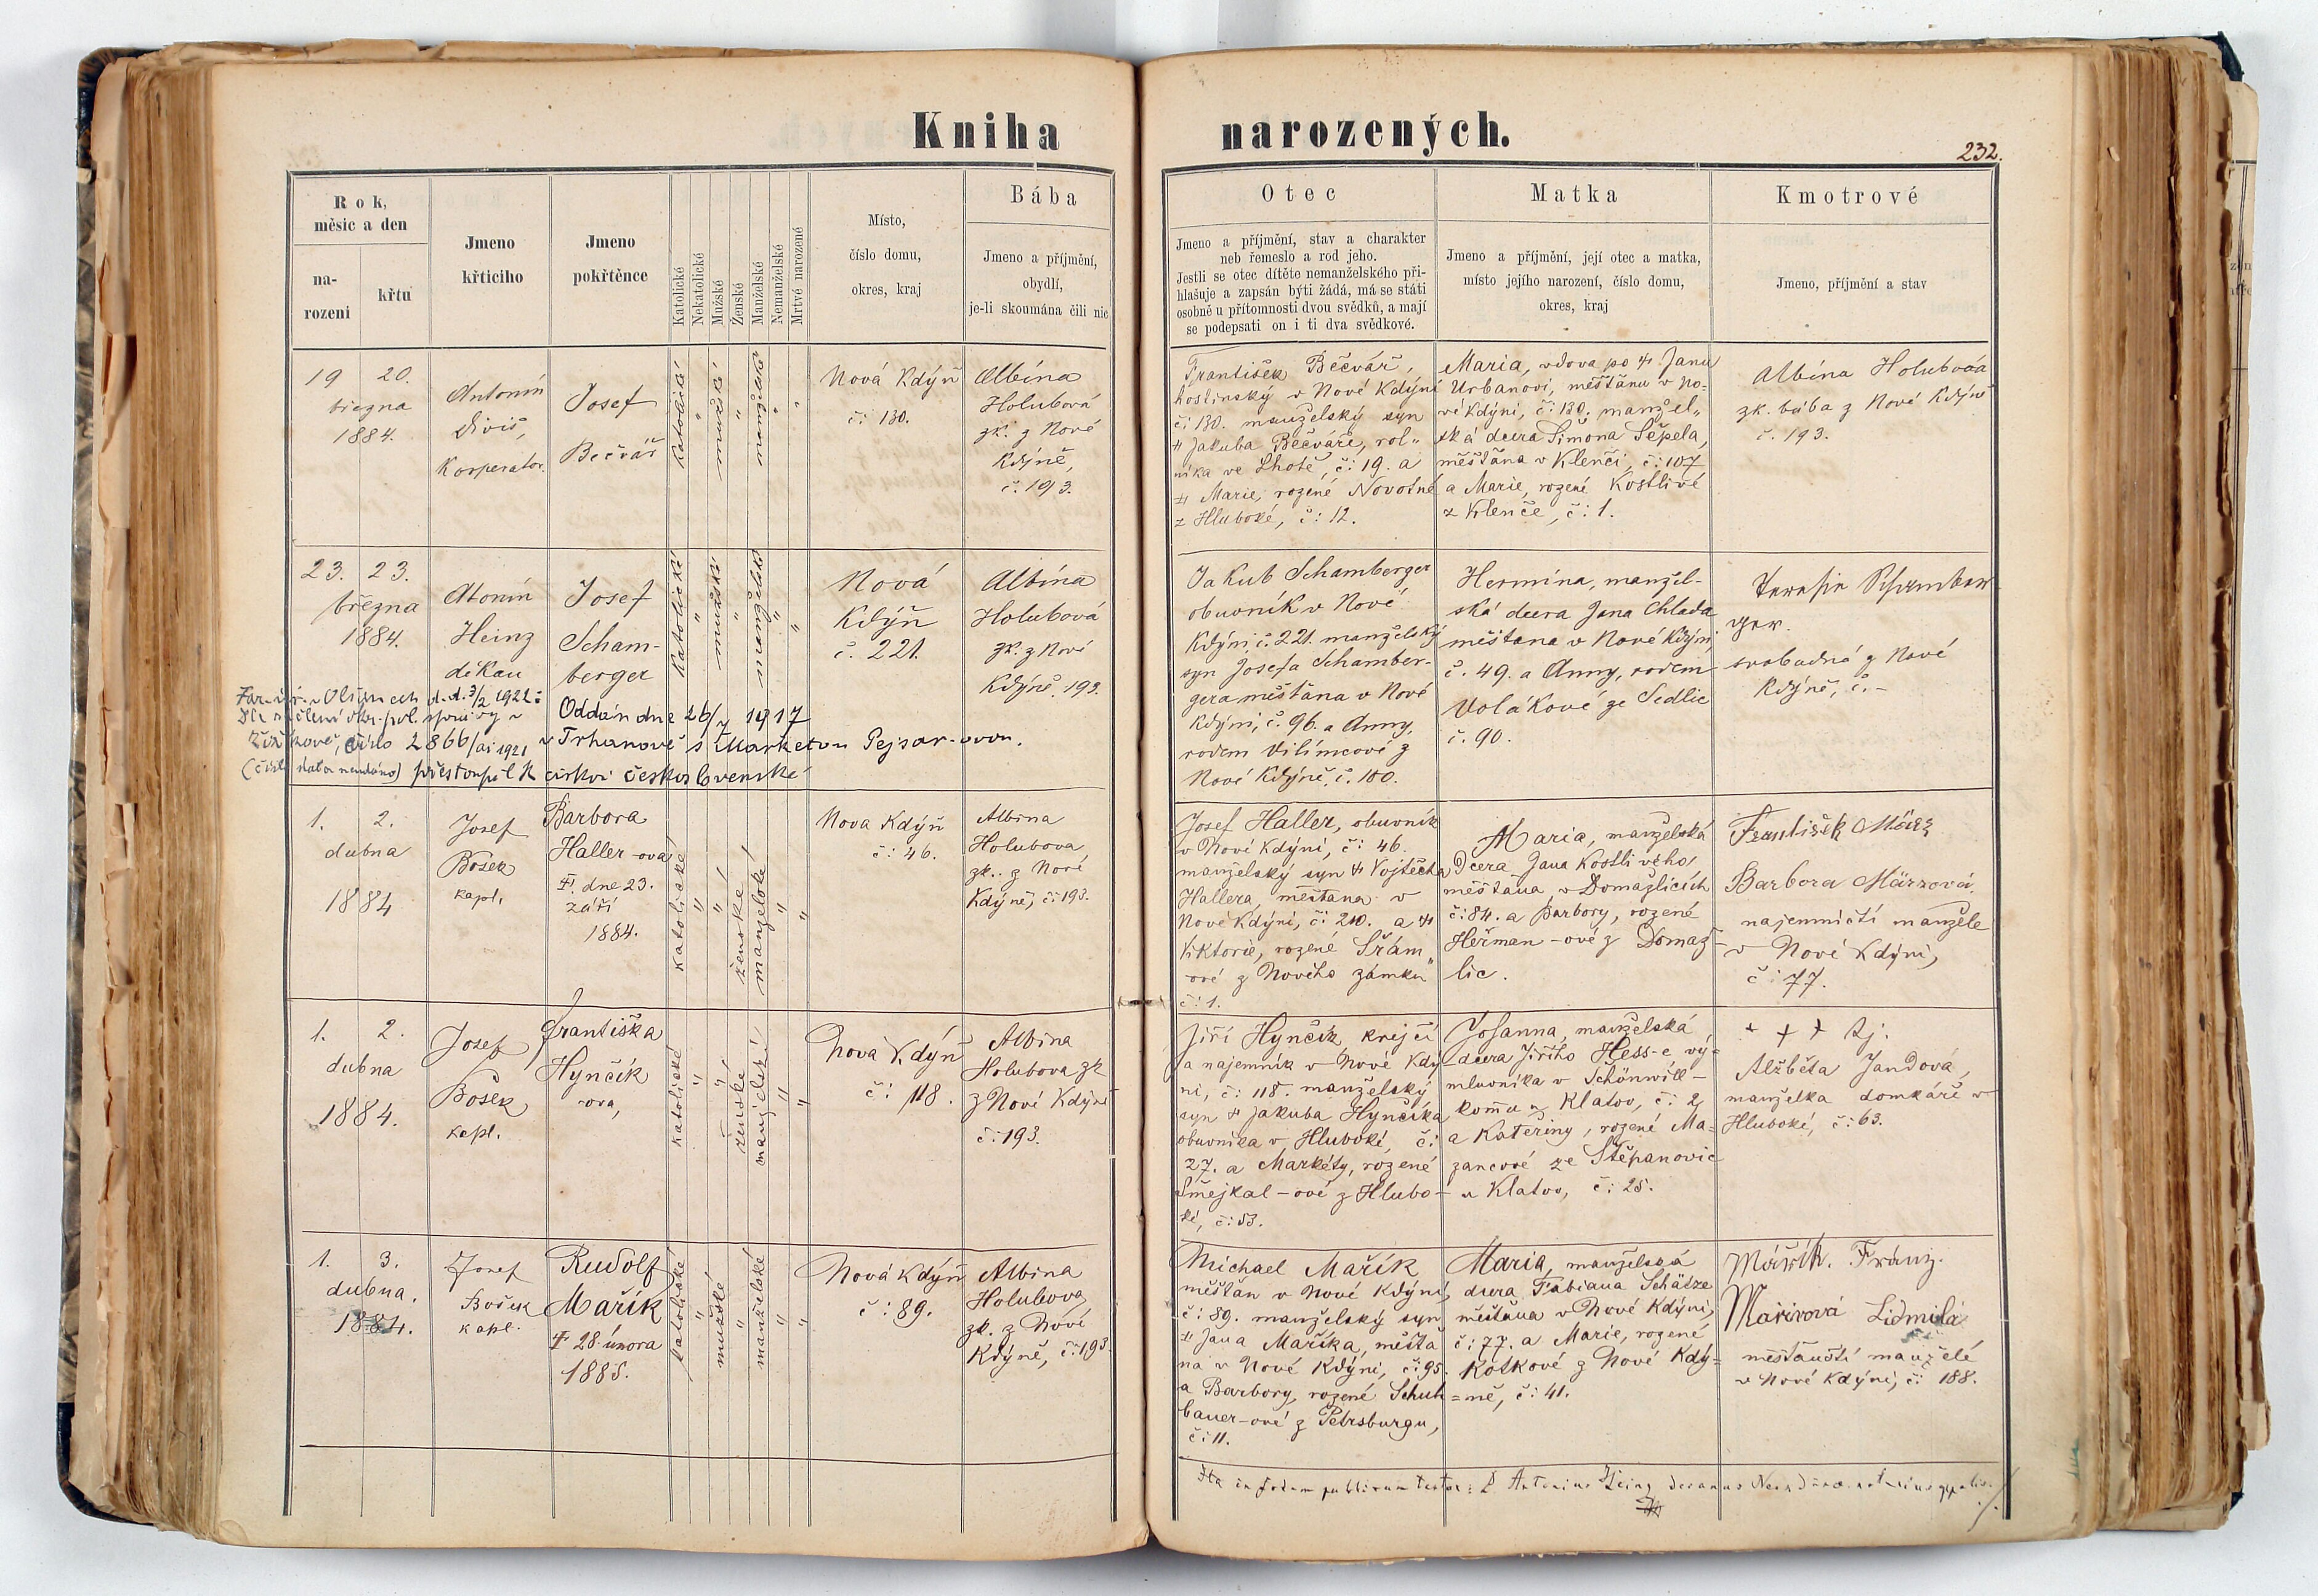 Kniha narozených.
232.
Rok,
měsíc a den
na-
rození
křtu
Jmeno
křticiho
Jmeno
pokřtěnce
Katolické
Nekatolické
Mužské
Ženské
Manželské
Nemanželské
Mrtvé narozené
Místo,
číslo domu,
okres, kraj
Bába
Jmeno a příjmění,
obydlí,
je-li skoumána čili nic
Otec
Jmeno a příjmění, stav a charakter
neb řemeslo a rod jeho.
Jestli se otec dítěte nemanželského při-
hlašuje a zapsán býti žádá, má se státi
osobně u přítomnosti dvou svědků, a mají
se podepsati on i ti dva svědkové.
Matka
Jmeno a příjmění, její otec a matka,
místo jejího narození, číslo domu,
okres, kraj
Kmotrové
Jmeno, příjmění a stav
19 20.
března
1884.
Antonín
Diviš,
Korperator.
Josef
Bečvář
katolické
"
mužské
"
manželské
"
"
Nová Kdýň
č: 130.
Albína
Holubová
zk. z Nové
Kdýně,
č. 193.
František Bečvář,
hostinský v Nové Kdýni
č: 130. manželský syn
† Jakuba Bečváře, rol„
níka ve Lhotě, č: 19. a
† Marie, rozené Novotné
z Hluboké, č: 12.
Maria, vdova po † Janu
Urbanovi, měšťanu v No=
vé Kdýni, č: 130. manžel„
ská dcera Šimona Sepela,
měšťana v Klenčí, č: 107
a Marie, rozené Kostlivé
z Klenče, č: 1.
Albína Holubová
zk. bába z Nové Kdýně
č. 193.
23. 23.
března
1884.
Antonín
Heinz
děkan
Josef
Scham-
berger
katolické
"
mužské
"
manželské
"
"
Nová
Kdýň
č. 221.
Albína
Holubová
zk. z Nové
Kdýně. 193.
Jakub Schamberger
obuvník v Nové
Kdýni, č. 221. manželský
syn Josefa Schamber-
gera měšťana v Nové
Kdýni, č. 96. a Anny,
rodem Vilímcové z
Nové Kdýně, č. 100.
Hermína, manžel-
ská dcera Jana Chlada
měštana v Nové Kdýni,
č. 49. a Anny, rodem
Volákové ze Sedlic
č. 90.
svobodná z Nové
Kdýně, č.-
Far. úř. v Olšanech d. d. 3/2 1922:
Dle sdělení okr. pol. správy v
Žižkově, číslo 2866/ai 1921
přestoupil k církvi československé
Oddán dne 26/7 1917
v Trhanově s Marketou Pejsar-ovou.
1. 2.
dubna
1884
Josef
Bošek
kapl.
Barbora
Haller-ova
†. dne 23.
září
1884.
katolické
"
"
ženské
manželské
"
"
Nova Kdýň
č: 46.
Albina
Holubova
zk. z Nové
Kdýně, č: 193.
Josef Haller, obuvník
v Nové Kdýni, č: 46.
manželský syn † Vojtěcha
Hallera, měštana v
Nové Kdýni, č: 210. a †
Viktorie, rozené Šrám
ové z Nového zámku
č: 1.
Maria, manželská
Dcera Jana Kostlivého,
měšťana v Domažlicích
č: 84. a Barbory, rozené
Heřman-ové z Domaž-
lic.
František März
Barbora Märzová
najemničtí manžele
v Nové Kdýni,
č: 77.
1. 2.
dubna
1884.
Josef
Bošek
kapl.
Františka
Hynčík
-ova,
katolické
"
"
ženské
manželské
"
"
Nova Kdýň
č: 118.
Albina
Holubova zk
z Nové Kdýně
č: 193.
Jiří Hynčík, krejčí
a najemník v Nové Kdý-
ni, č: 118. manželský
syn † Jakuba Hynčíka
obuvníka v Hluboké, č:
27. a Markéty, rozené
Smejkal-ové z Hlubo-
ké, č: 53.
Johanna, manželská
dcera Jiřího Hess-e vý=
mluvníka v Schönwill-
komu u Klatov, č: 2
a Kateřiny, rozené Ma=
zancové ze Štěpanovic
u Klatov, č: 25.
+ + + tj:
Alžběta Jandova,
manželka domkáře v
Hluboké, č: 63.
1. 3.
dubna.
1884.
Josef
Bošek
kapl.
Rudolf
Mařík
† 28. února
1885.
katolické
"
mužské
"
manželské
"
"
Nová Kdýň
č: 89.
Albina
Holubova
zk. z Nové
Kdýně, č: 193
Michael Mařík
měšťan v Nové Kdýni,
č: 89. manželský syn
† Jana Maříka, měšťa
na v Nové Kdýni, č: 95.
a Barbory, rozené Schuh
bauer-ové z Petrsburgu,
č: 11.
Maria, manželská
dcera Fabiana Schätze
měšťana v Nové Kdýni,
č: 77. a Marie, rozené
Kotkové z Nové Kdý=
=ně, č: 41.
Mařík. Franz.
Maříková Lidmila
měšťanští manželé
v Nové Kdýni, č: 188.
Ita in fidem publicam testor: Antonius Heinz decanus